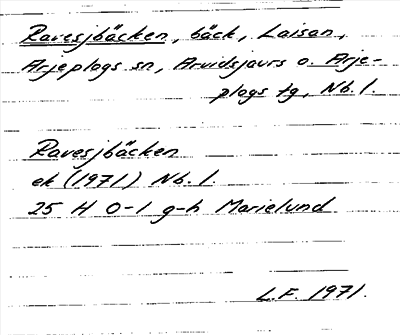 Ravesjbäcken, bäck, Laisan,
Arjeplogs sn, Arvidsjaurs o. Arje-
plogs tg, Nb. l.
Ravesjbäcken
ek (1971) Nb. l.
25 H 0-1 g-h Marielund
L.F. 1971.